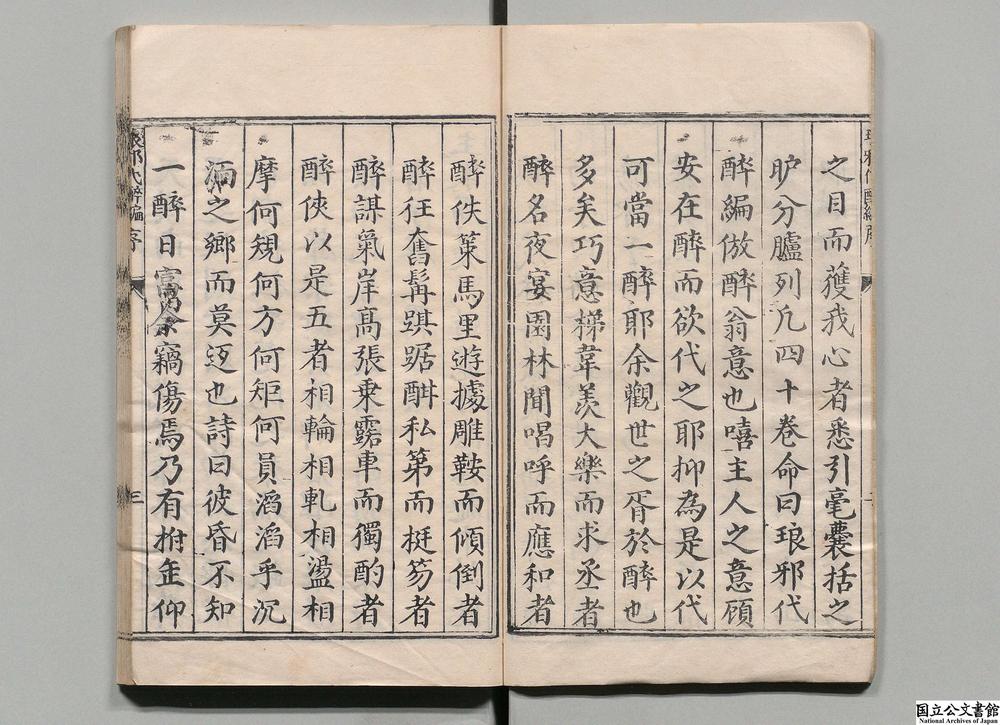 之目而獲我心者悉引毫囊括之
昈分臚列凡四十卷命曰琅邪代
醉編倣醉翁意也嘻主人之意顧
安在醉而欲代之耶抑為是以代
可當一醉耶余觀世之胥於醉也
多矣巧意梯韋羨大樂而求丞者
醉名夜宴園林聞唱呼而應和者
醉佚策馬里遊據雕鞍而傾倒者
醉狂奮髯踑踞酣私第而梃笏者
醉謀氣岸高張乗露車而獨酌者
醉俠以是五者相輪相軋相盪相
摩何規何方何矩何員滔滔乎沉
湎之鄉而莫迓也詩曰彼昏不知
一醉日富余竊傷焉乃有拊缶仰
琅邪代醉編序
三
国立公文書館
National Archives of Japan